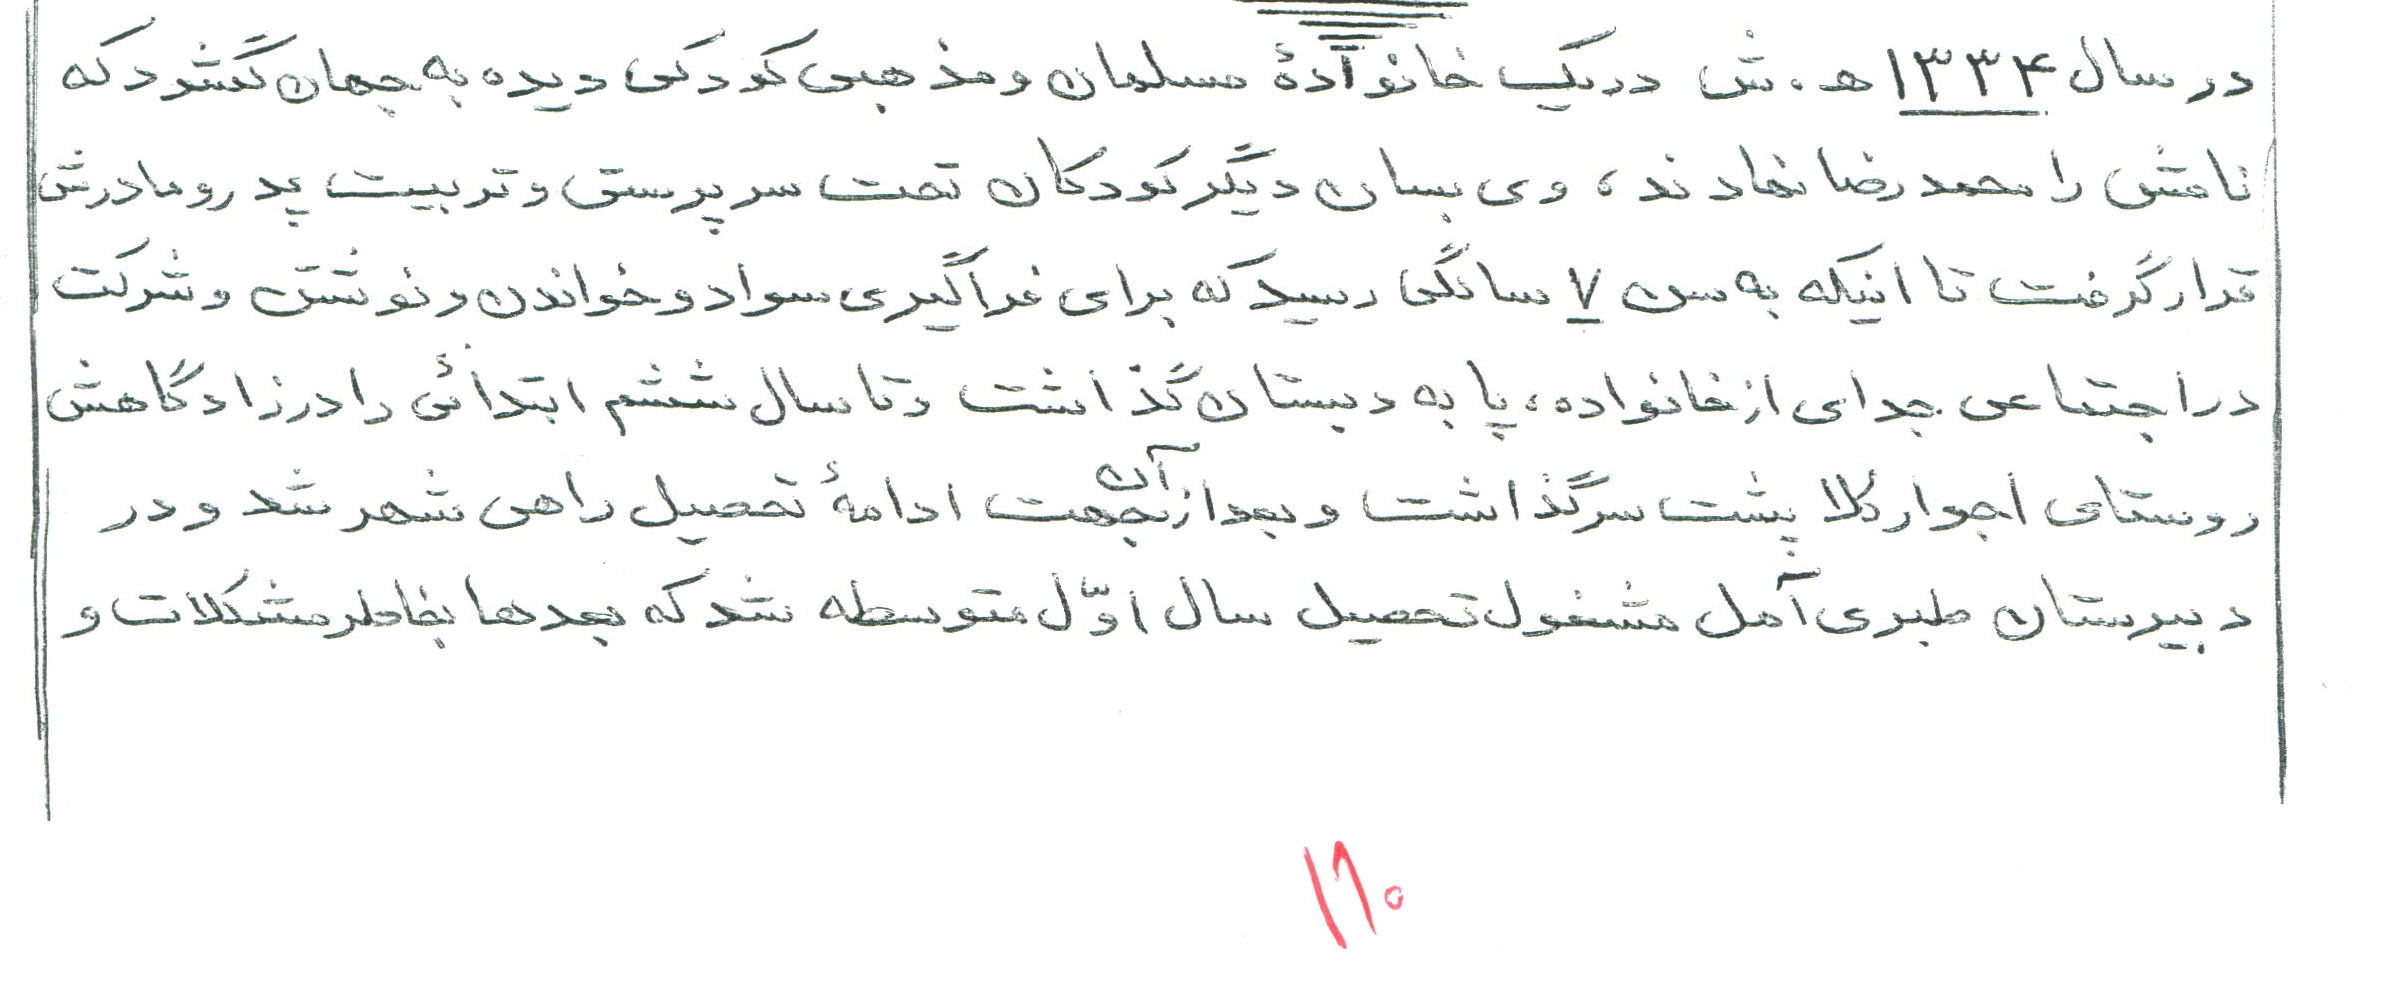 در سال ۱۳۳۴ ه.ش در یک خانوادهٔ مسلمان و مذهبی کودکی دیده به جهان گشود که
نامش را محمدرضا نهادند، وی بسان دیگر کودکان تحت سرپرستی و تربیت پدر و مادرش
قرار گرفت تا اینکه به سن ۷ سالگی رسید که برای فراگیری سواد و خواندن و نوشتن و شرکت
در اجتماعی جدای از خانواده، پا به دبستان گذاشت و تا سال ششم ابتدائی را در زادگاهش
روستای اجوارکلا پشت سر گذاشت و بعد از آن جهت ادامهٔ تحصیل راهی شهر شد و در
دبیرستان طبری آمل مشغول تحصیل سال اوّل متوسطه شد که بعدها بخاطر مشکلات و
۱۶۰